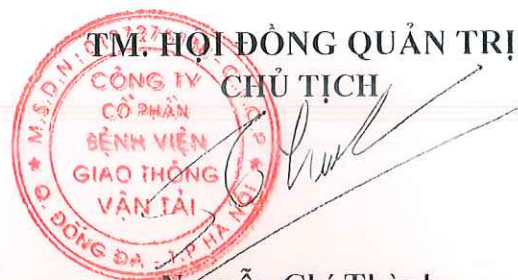 TM. HỘI ĐỒNG QUẢN TRỊ
CHỦ TỊCH
M.S.D.N:
CÔNG TY
CỔ PHẦN
BỆNH VIỆN
GIAO THÔNG
VẬN TẢI
Q. ĐỐNG ĐA - T.P HÀ NỘI